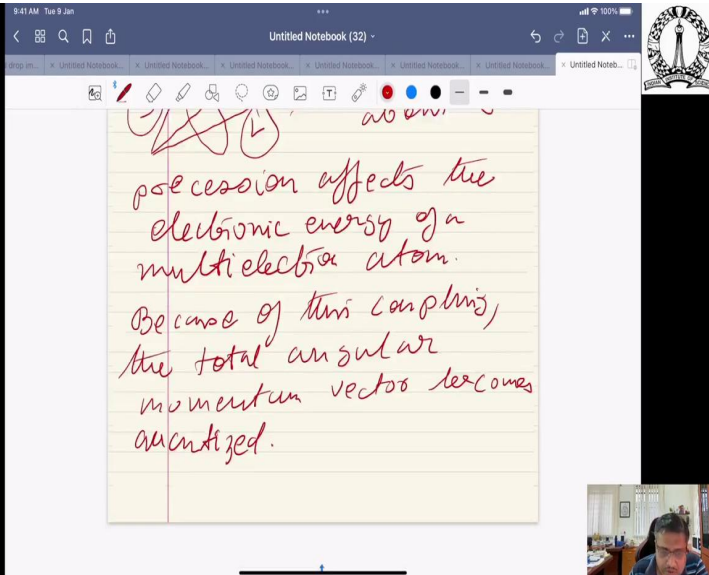 9:41 AM Tue 9 Jan
100%
Untitled Notebook (32)
Untitled Notebook...
Untitled Notebook...
Untitled Notebook...
Untitled Notebook...
Untitled Notebook...
Untitled Notebook...
Untitled Noteb...
precession affects the
electronic energy of a
multielectron atom.
Because of this coupling,
the total angular
momentum vector becomes
quantized.